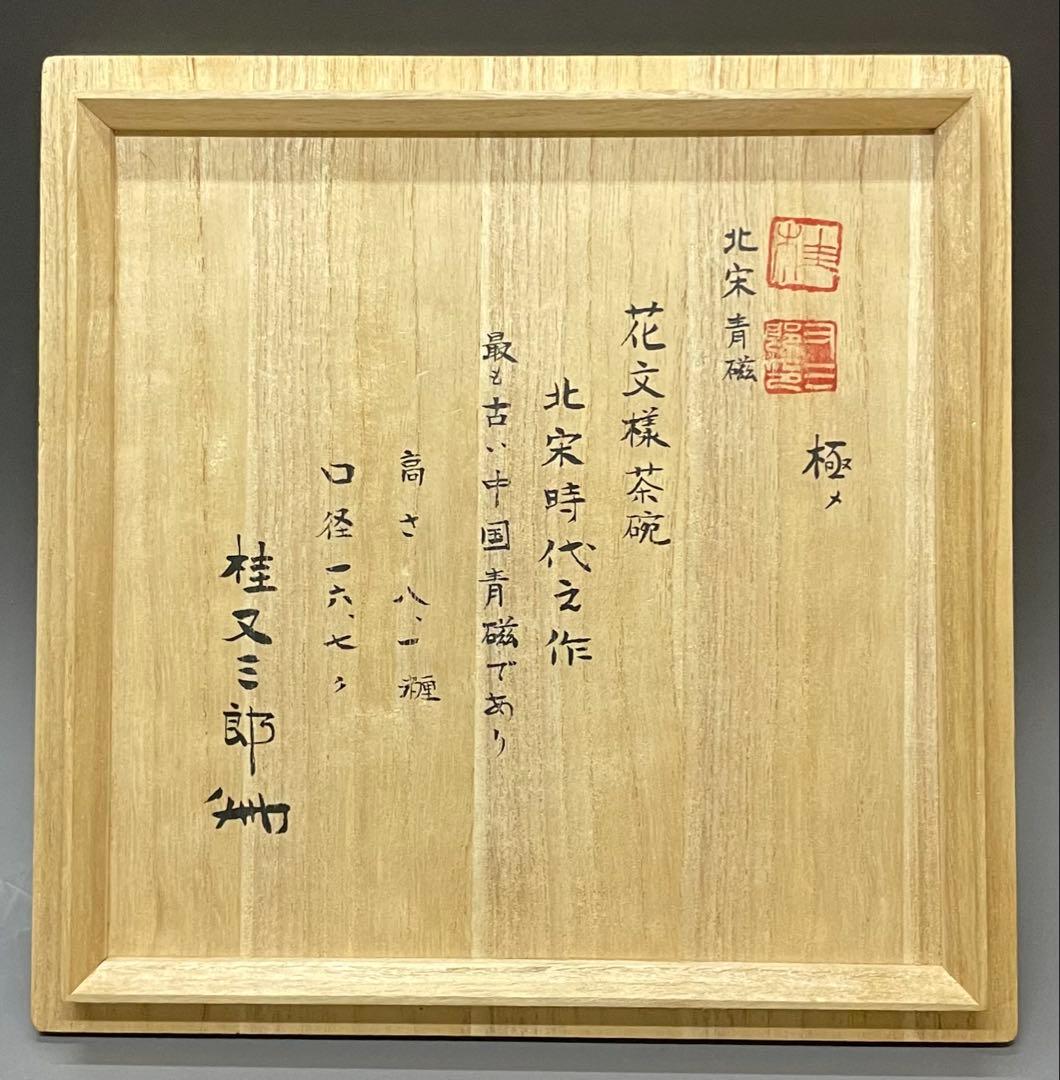 極メ
北宋青磁
花文様茶碗
北宋時代之作
最も古い中国青磁であり
高さ 八、一糎
口径一六、七〃
桂又三郎
桂
又三郎印